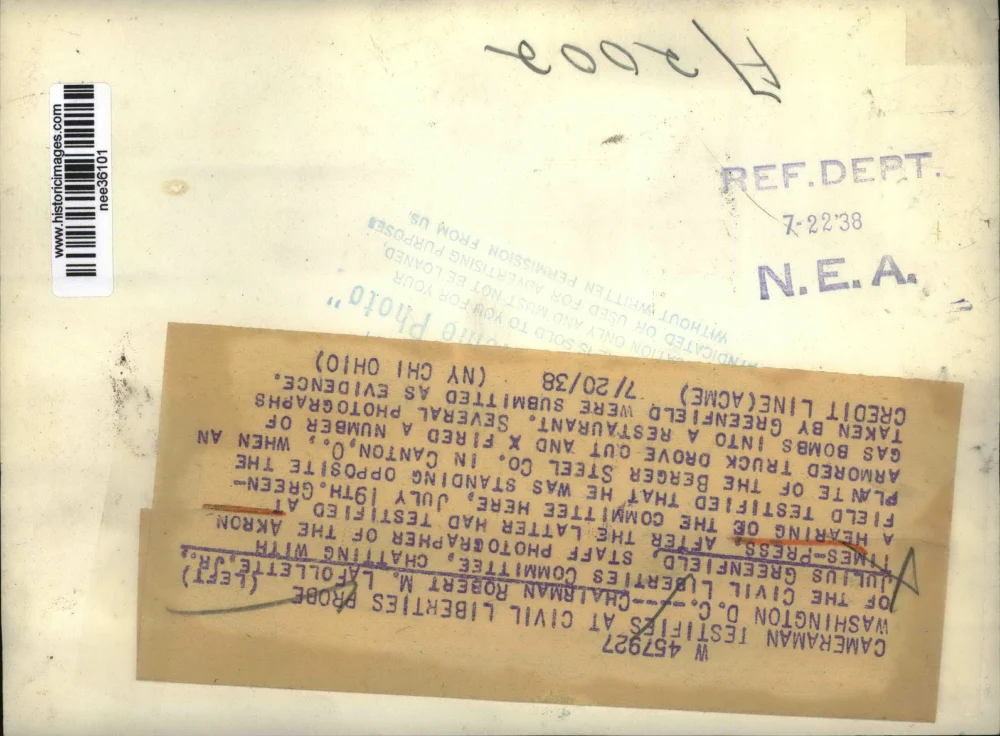 www.historicimages.com
nee36101
REF. DEPT.
7-22'38
N. E. A.
W 457927
CAMERAMAN TESTIFIES AT CIVIL LIBERTIES PROBE
WASHINGTON D.C.----CHAIRMAN ROBERT M. LAFOLLETTE,JR., (LEFT)
OF THE CIVIL LIBERTIES COMMITTEE, CHATTING WITH
JULIUS GREENFIELD, STAFF PHOTOGRAPHER OF THE AKRON
TIMES-PRESS, AFTER THE LATTER HAD TESTIFIED AT
A HEARING OF THE COMMITTEE HERE, JULY 19TH. GREEN-
FIELD TESTIFIED THAT HE WAS STANDING OPPOSITE THE
PLANTE OF THE BERGER STEEL CO. IN CANTON,O., WHEN AN
ARMORED TRUCK DROVE OUT AND X FIRED A NUMBER OF
GAS BOMBS INTO A RESTAURANT. SEVERAL PHOTOGRAPHS
TAKEN BY GREENFIELD WERE SUBMITTED AS EVIDENCE.
CREDIT LINE(ACME) 7/20/38 (NY CHI OHIO)
Photo"
IS SOLD TO YOU FOR YOUR
ONLY AND MUST NOT BE LOANED,
OR USED FOR ADVERTISING PURPOSES
WITHOUT WRITTEN PERMISSION FROM US.
2002